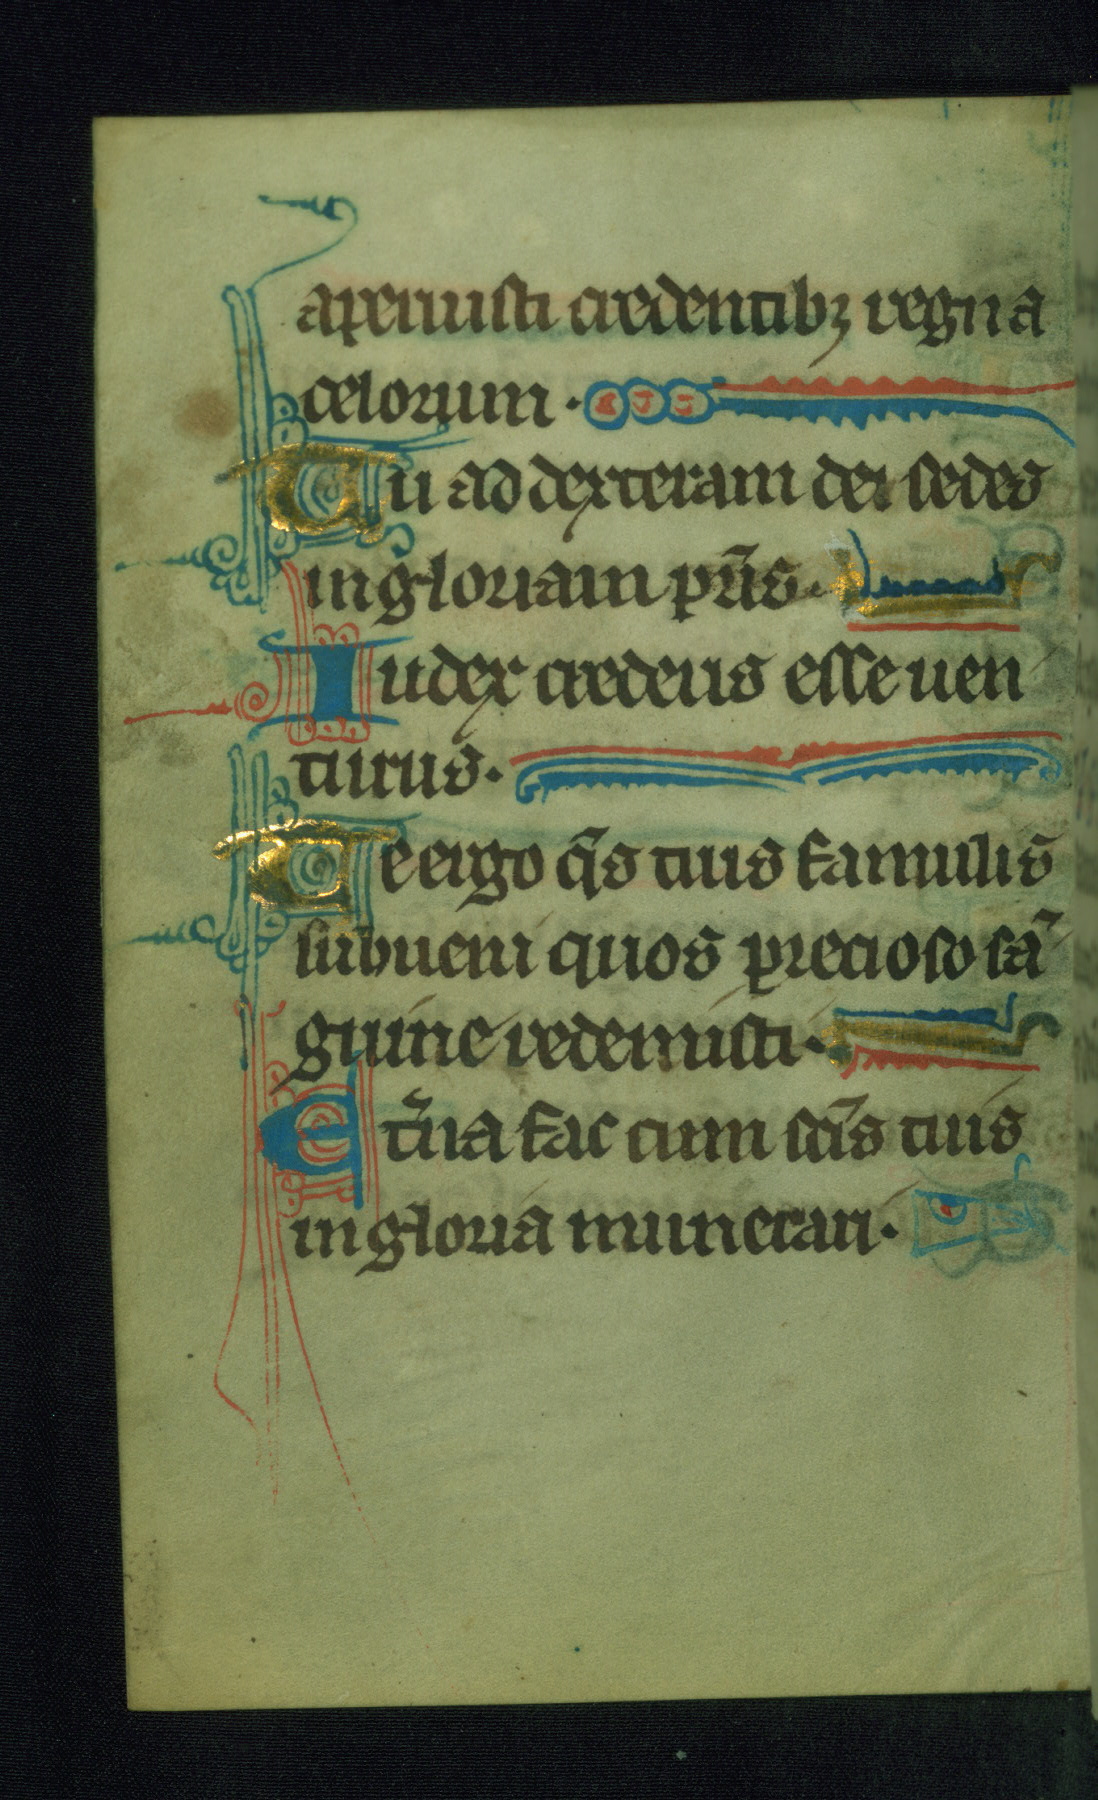 aperuisti credentibꝫ regna
celorum.
Tu ad dexteram dei sedes
in gloriam pr̄is.
Iudex crederis esse uen
turus.
Te ergo q̄s tuis famulis
subueni quos precioso sā
guine redemisti.
Et̓na fac cum sc̄is tuis
in gloria munerari.